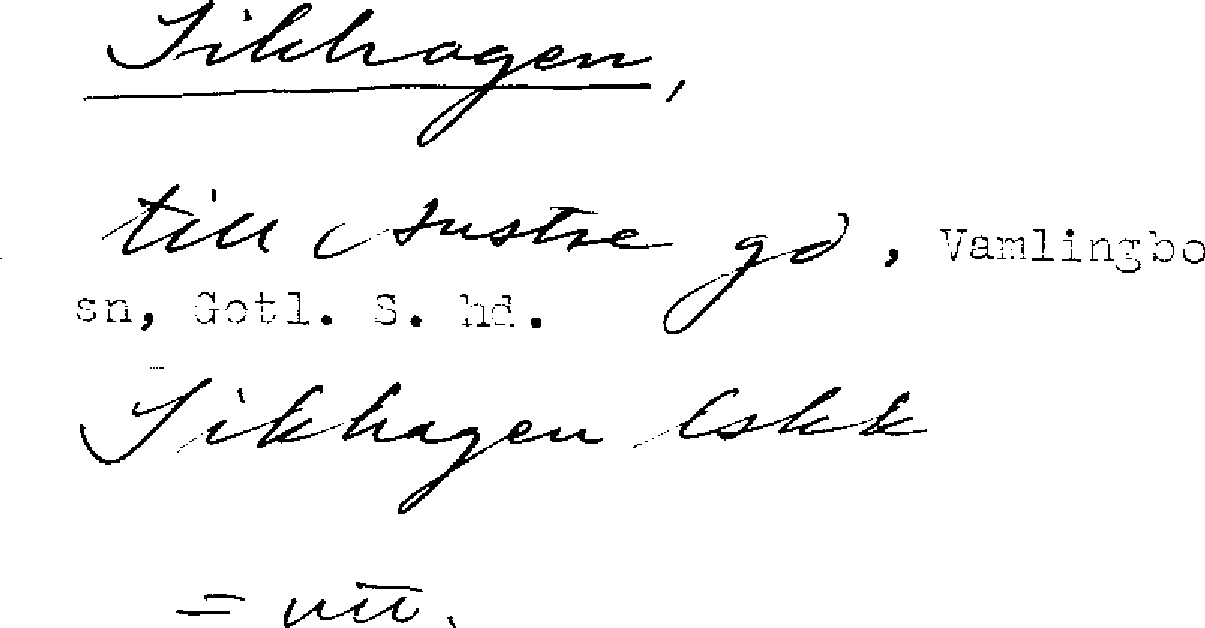 Sikhagen,
till Austre gd, Vamlingbo
sn, Gotl. S. hd.
Sikhagen Eskk
=